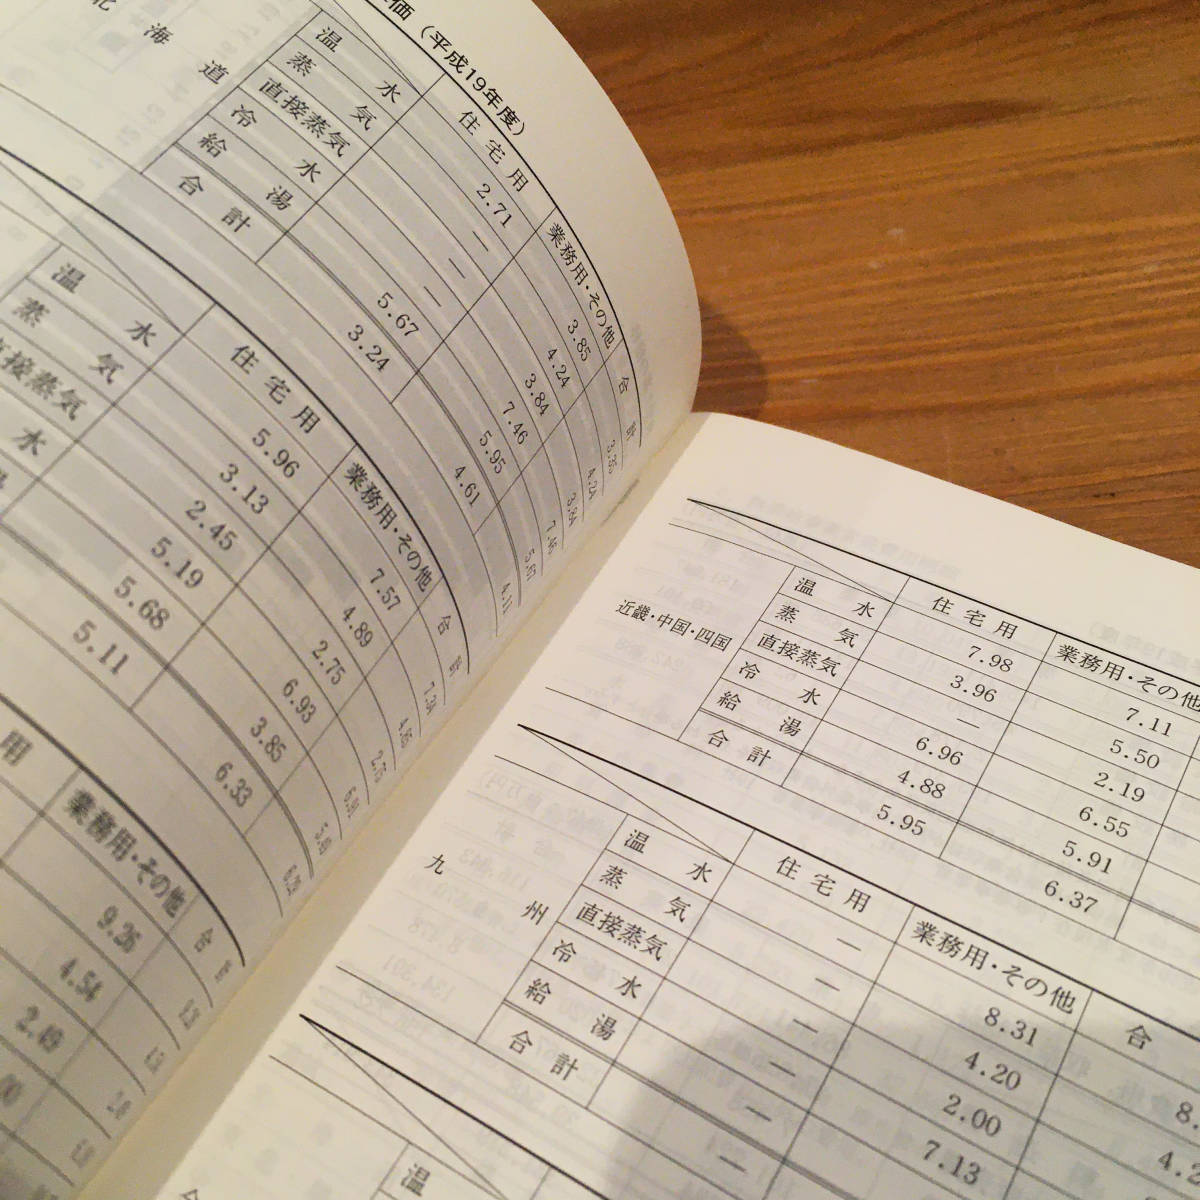 価（平成19年度）
住宅用 業務用・その他 合計
海道
温水 2.71 3.85 3.35
蒸気 — 4.24 4.24
直接蒸気 — 3.84 3.84
冷水 — 7.46 7.46
給湯 5.67 5.95 5.67
合計 3.24 4.61 4.11
住宅用 業務用・その他 合計
温水 5.96 7.57
蒸気 3.13 4.89
直接蒸気 2.45 2.75
水 5.19 6.93
5.68 3.85
5.11 6.33
用 業務用・その他 合計
9.26
4.54
2.49
住宅用 業務用・その他
近畿・中国・四国
温水 7.98 7.11
蒸気 3.96 5.50
直接蒸気 — 2.19
冷水 6.96 6.55
給湯 4.88 5.91
合計 5.95 6.37
住宅用 業務用・その他 合
九州
温水 — 8.31 8.
蒸気 — 4.20 4.2
直接蒸気 — 2.00
冷水 — 7.13
給湯 —
合計 —
温